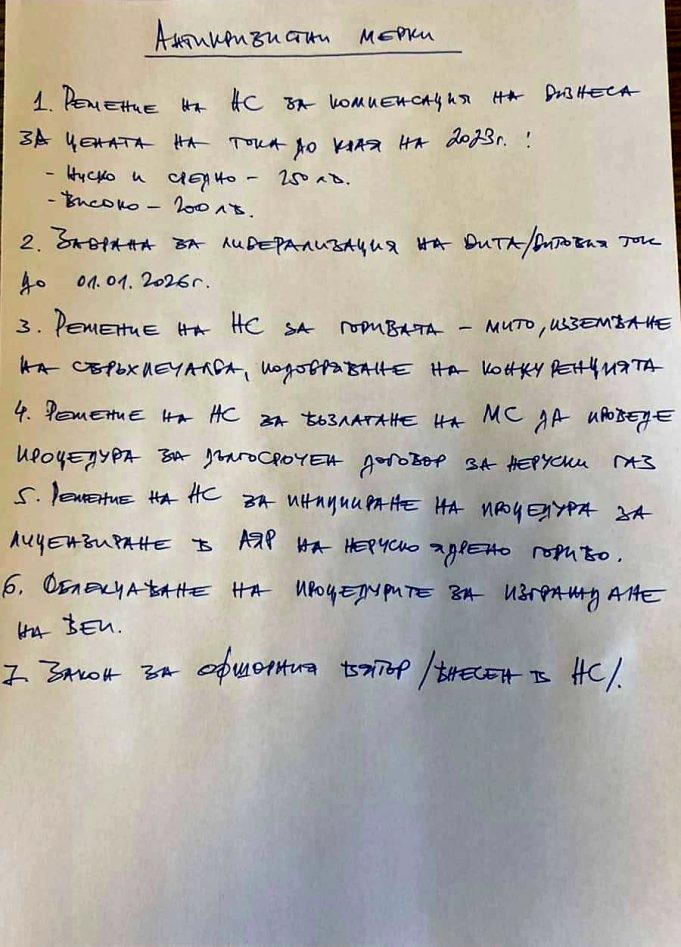 Антикризистни мерки
1. Решение на НС за компенсация на бизнеса
за цената на тока до края на 2023г. :
- Ниско и средно - 250 лв.
- Високо - 200 лв.
2. Забрана за либерализация на бита/битовия ток
до 01.01.2026г.
3. Решение на НС за горивата - мито, изземване
на свръхпечалба, подобряване на конкуренцията
4. Решение на НС за възлагане на МС да проведе
процедура за дългосрочен договор за неруски газ
5. Решение на НС за иницииране на процедура за
лицензиране в АЯР на неруско ядрено гориво.
6. Облекчаване на процедурите за изграждане
на ВЕИ.
7. Закон за офшорния вятър /внесен в НС/.